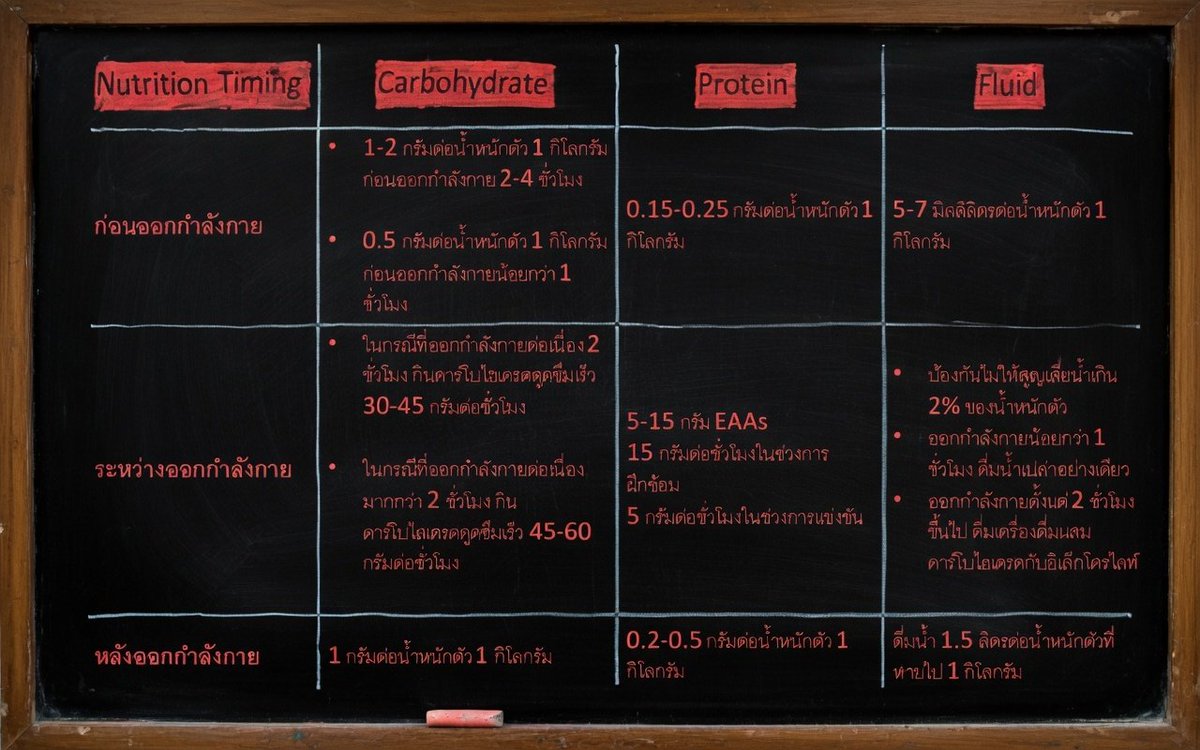 Nutrition Timing
Carbohydrate
Protein
Fluid
ก่อนออกกำลังกาย
• 1-2 กรัมต่อน้ำหนักตัว 1 กิโลกรัม
ก่อนออกกำลังกาย 2-4 ชั่วโมง
• 0.5 กรัมต่อน้ำหนักตัว 1 กิโลกรัม
ก่อนออกกำลังกายน้อยกว่า 1
ชั่วโมง
0.15-0.25 กรัมต่อน้ำหนักตัว 1
กิโลกรัม
5-7 มิลลิลิตรต่อน้ำหนักตัว 1
กิโลกรัม
ระหว่างออกกำลังกาย
• ในกรณีที่ออกกำลังกายต่อเนื่อง 2
ชั่วโมง กินคาร์โบไฮเดรตดูดซึมเร็ว
30-45 กรัมต่อชั่วโมง
• ในกรณีที่ออกกำลังกายต่อเนื่อง
มากกว่า 2 ชั่วโมง กิน
คาร์โบไฮเดรตดูดซึมเร็ว 45-60
กรัมต่อชั่วโมง
5-15 กรัม EAAs
15 กรัมต่อชั่วโมงในช่วงการ
ฝึกซ้อม
5 กรัมต่อชั่วโมงในช่วงการแข่งขัน
• ป้องกันไม่ให้สูญเสียน้ำเกิน
2% ของน้ำหนักตัว
• ออกกำลังกายน้อยกว่า 1
ชั่วโมง ดื่มน้ำเปล่าอย่างเดียว
• ออกกำลังกายตั้งแต่ 2 ชั่วโมง
ขึ้นไป ดื่มเครื่องดื่มผสม
คาร์โบไฮเดรตกับอิเล็กโตรไลท์
หลังออกกำลังกาย
1 กรัมต่อน้ำหนักตัว 1 กิโลกรัม
0.2-0.5 กรัมต่อน้ำหนักตัว 1
กิโลกรัม
ดื่มน้ำ 1.5 ลิตรต่อน้ำหนักตัวที่
หายไป 1 กิโลกรัม